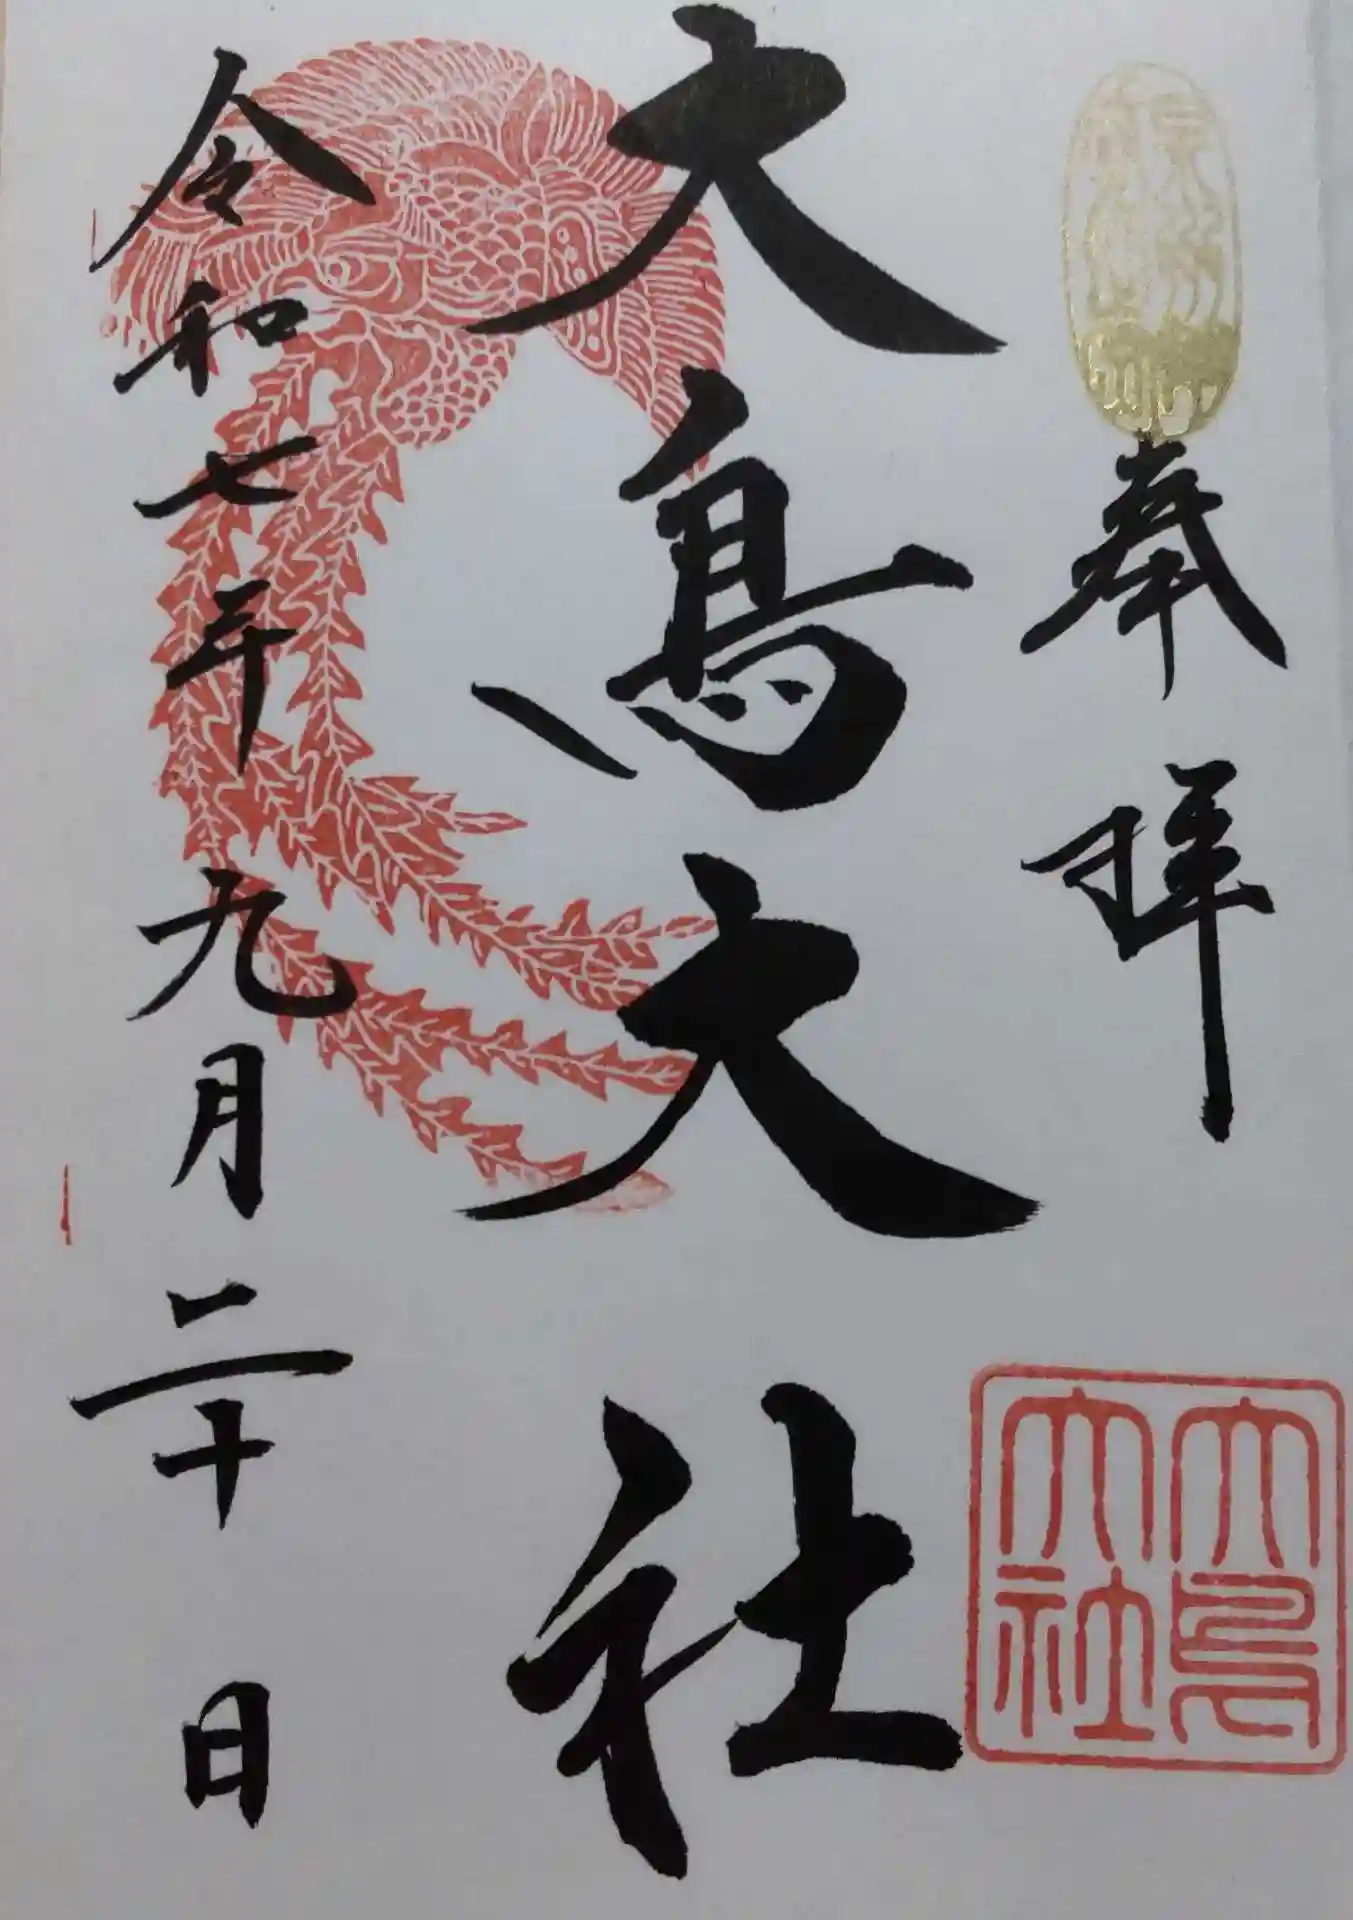 奉拝
大鳥大社
令和七年九月二十日
大鳥
大社